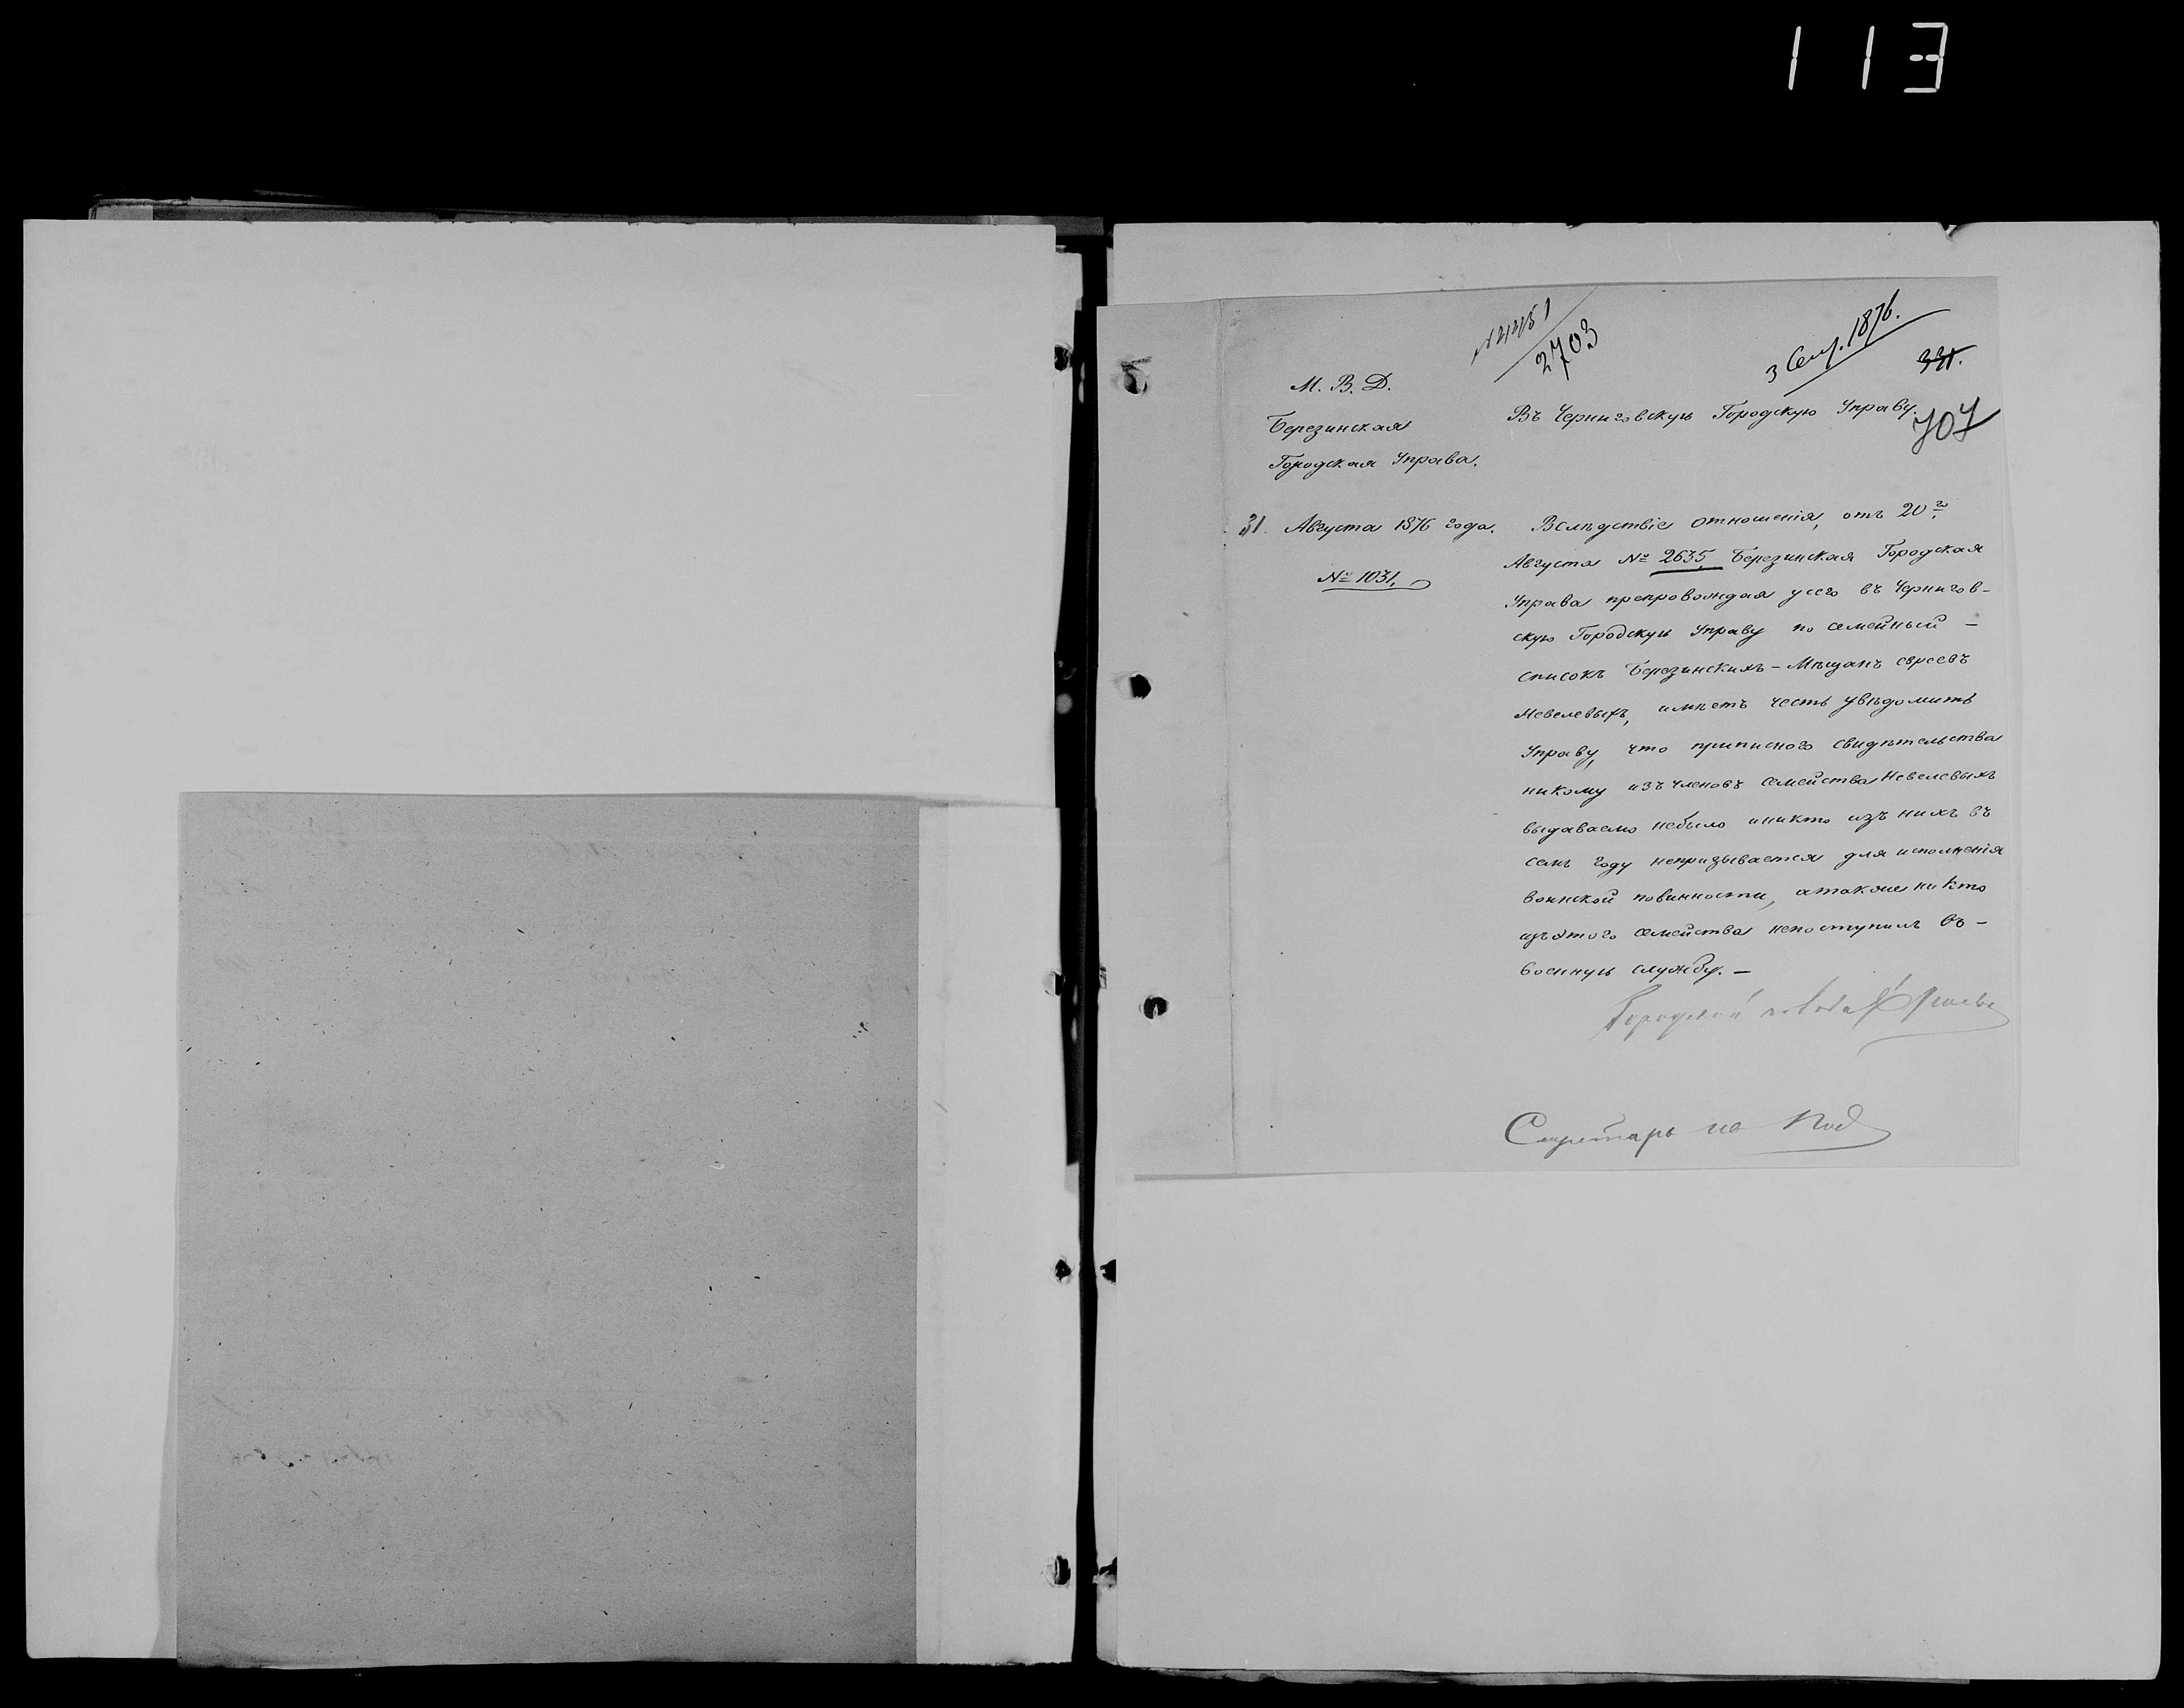 113
2703
3 Сент. 1876.
331.
707
М. В. Д.
Березинская
Городская Управа.
31. Августа 1876 года.
№ 1031.
Въ Черниговскую Городскую Управу.
Вслѣдствіе отношенія, отъ 20го.
Августа № 2635, Березинская Городская
Управа препровождая усего въ Чернигов-
скую Городскую Управу по семейный -
списокъ Березинскихъ - Мѣщанъ евреевъ
Невелевыхъ, имѣетъ честь увѣдомить
Управу, что приписного свидѣтельства
никому изъ членовъ семейства Невелевыхъ
выдаваемо небыло иникто изъ нихъ въ
семъ году непризывается для исполненія
воинской повинности, атакже никто
изъ этого семейства непоступилъ въ -
военную службу. -
Городской голова
Секретарь